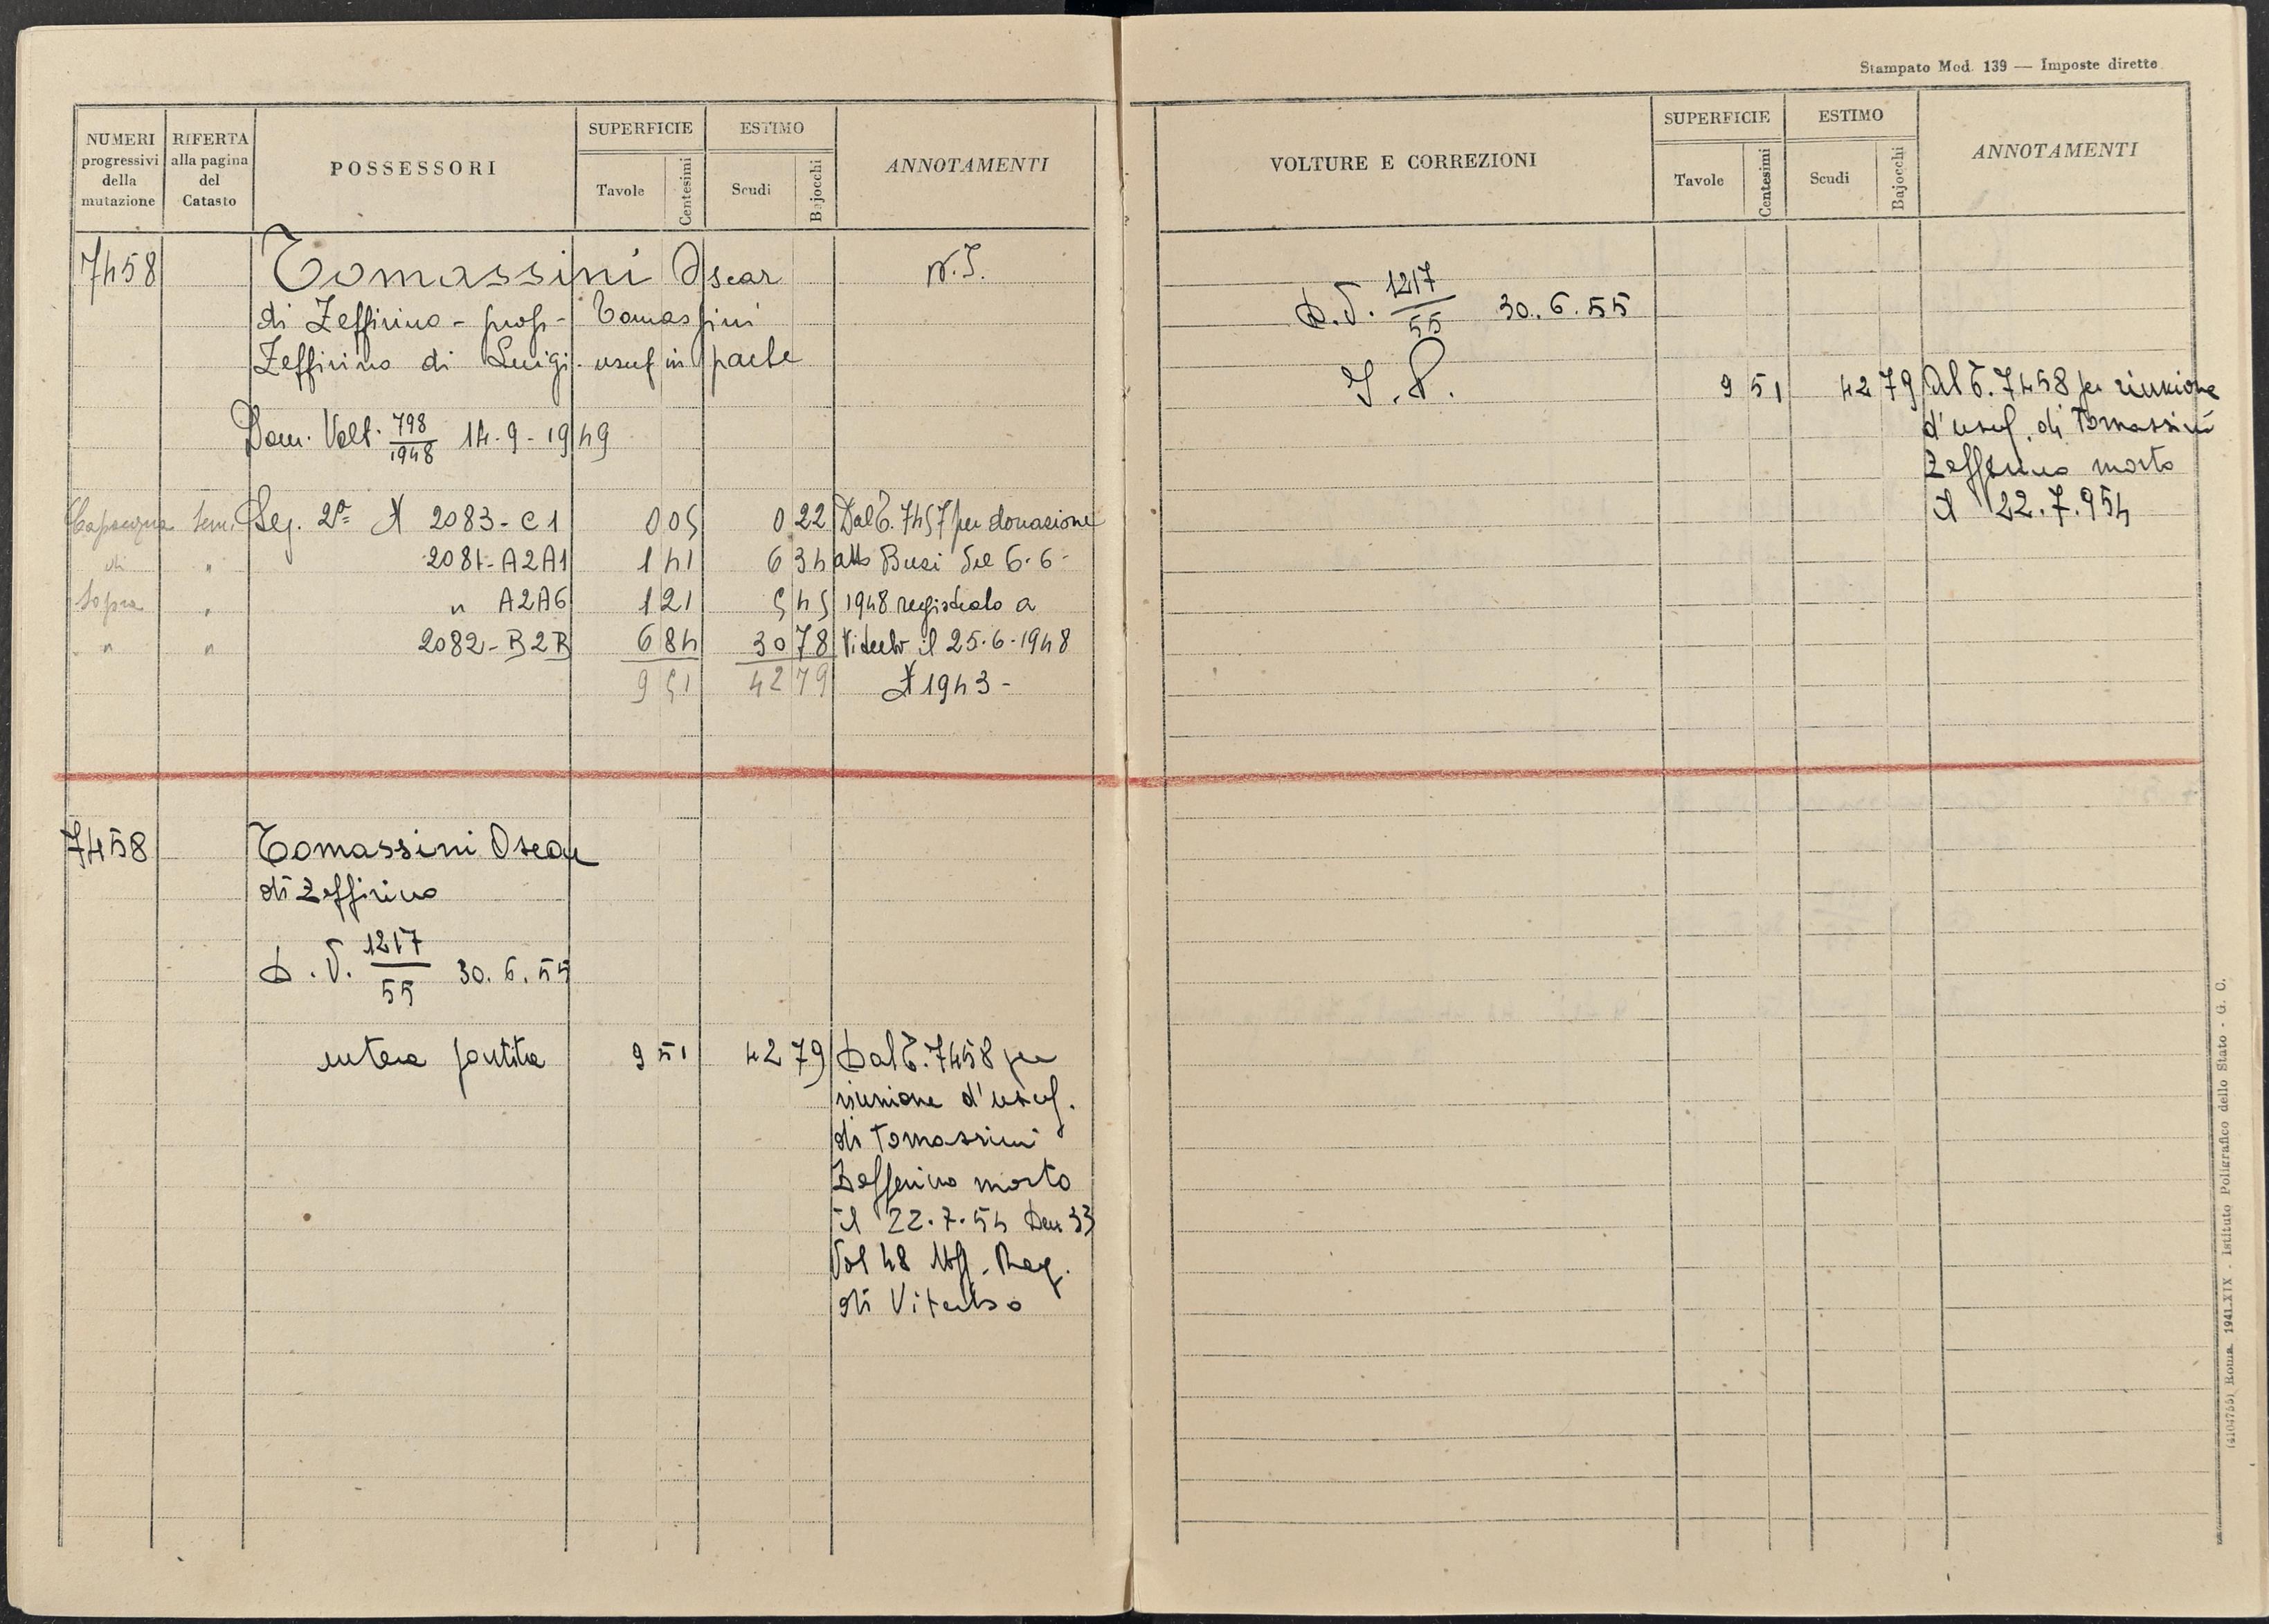 Stampato Mod. 139 — Imposte dirette
NUMERI progressivi della mutazione
RIFERTA alla pagina del Catasto
POSSESSORI
SUPERFICIE
Tavole
Centesimi
ESTIMO
Scudi
Bajocchi
ANNOTAMENTI
7458 Tomassini Oscar N.I.
di Zeffirino - prop- Tomassini
Zeffirino di Luigi - usuf in parte
Dom. Volt. 798/1948 14-9-1949
Capacqua Sem. Seg. 2ª N 2083-C1 0 05 0 22 Dal T. 7457 per donazione
di " 2081-A2A1 1 41 6 34 atto Busi del 6-6-
Sopra " " A2A6 1 21 5 45 1948 registrato a
" " 2082-B2B 6 84 30 78 Viterbo il 25-6-1948
9 51 42 79 N 1943-
7458 Tomassini Oscar
di Zeffirino
D.V. 1217/55 30.6.55
intera partita 9 51 42 79 Dal T. 7458 per
riunione d'usuf.
di Tomassini
Zefferino morto
il 22.7.54 Den 33
Vol 48 Uff. Reg.
di Viterbo
VOLTURE E CORREZIONI
SUPERFICIE
Tavole
Centesimi
ESTIMO
Scudi
Bajocchi
ANNOTAMENTI
D.V. 1217/55 30.6.55
I.P. 9 51 42 79 Al T. 7458 per riunione
d'usuf. di Tomassini
Zefferino morto
il 22.7.954
(4104755) Roma 1941-XIX - Istituto Poligrafico dello Stato - G. C.